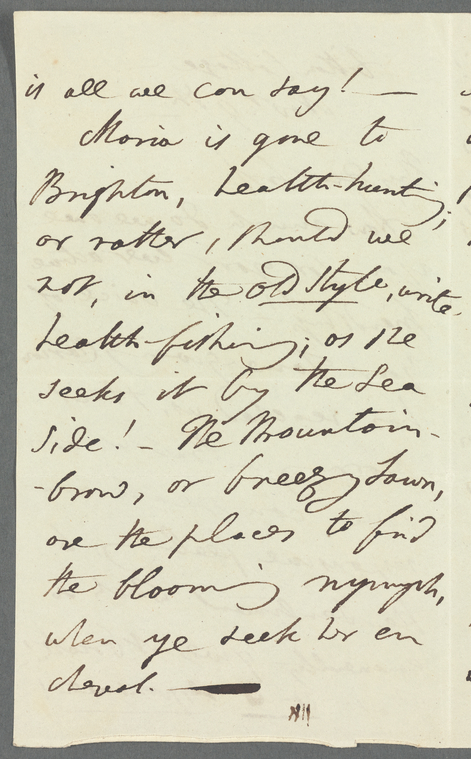 is all we can say! —
Maria is gone to
Brighton, health-hunting;
or rather, should we
not, in the old style, write
health-fishing; as she
seeks it by the Sea
side! – The Mountain-
-brow, or breezy Lawn,
are the places to find
the blooming nymph,
when ye seek her en
cheval. —